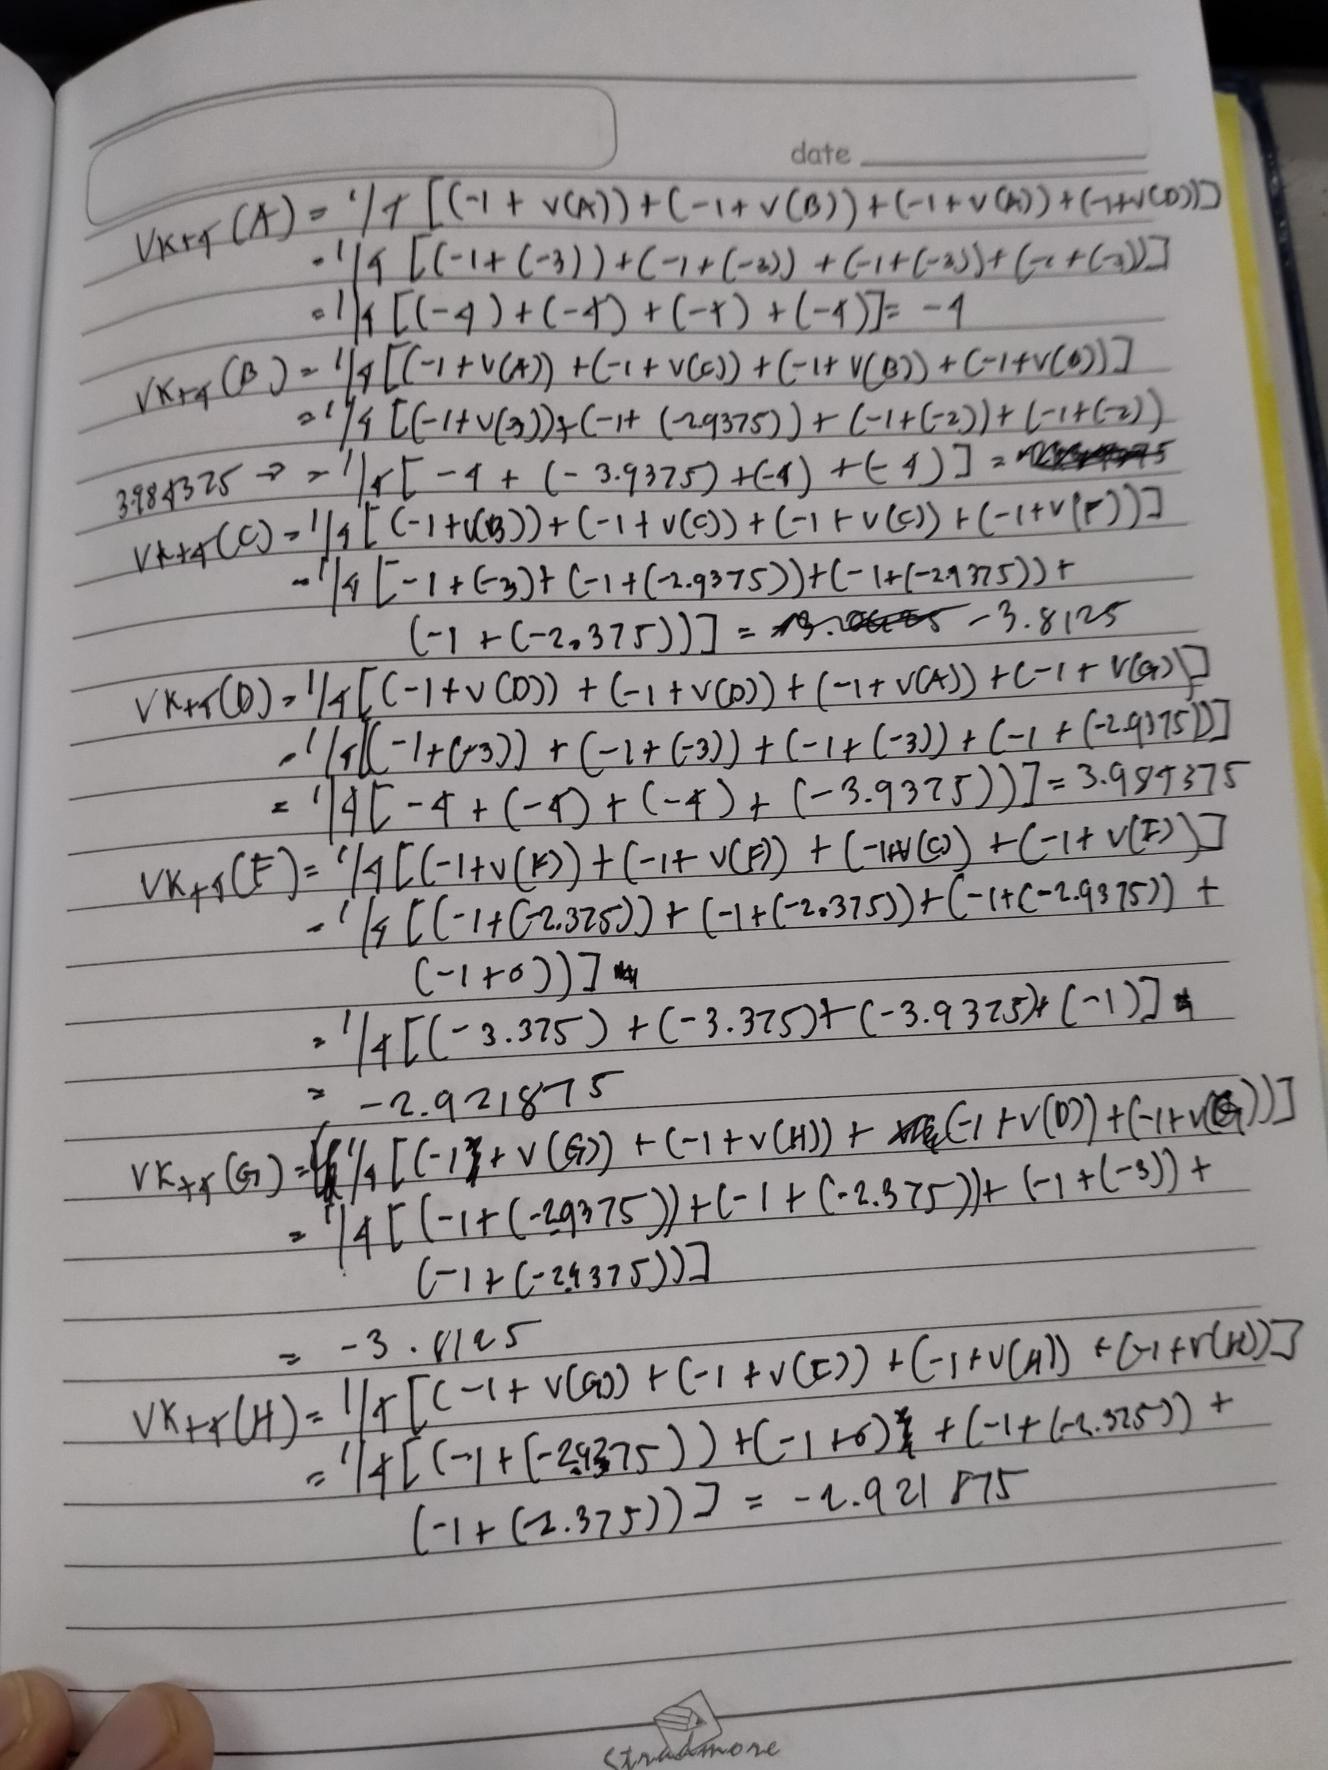 date
VK+4(A) = 1/4 [(-1 + V(A)) + (-1 + V(B)) + (-1 + V(A)) + (-1+V(D))]
= 1/4 [(-1 + (-3)) + (-1 + (-3)) + (-1 + (-3)) + (-1 + (-3))]
= 1/4 [(-4) + (-4) + (-4) + (-4)] = -4
VK+4(B) = 1/4 [(-1 + V(A)) + (-1 + V(C)) + (-1 + V(B)) + (-1+V(B))]
= 1/4 [(-1+V(3)) + (-1+ (-2.9375)) + (-1+(-2)) + (-1+(-2))
3.984375 → = 1/4 [ -4 + (-3.9375) + (-4) + (-4) ] =
VK+4(C) = 1/4 [ (-1+V(B)) + (-1 + V(C)) + (-1 + V(C)) + (-1+V(F))]
= 1/4 [-1 + (-3) + (-1 + (-2.9375)) + (-1+(-2.9375)) +
(-1 + (-2.375))] = -3.8125
VK+4(D) = 1/4 [(-1+V(D)) + (-1+V(D)) + (-1+V(A)) + (-1 + V(G))]
= 1/4 [(-1+(-3)) + (-1+(-3)) + (-1+(-3)) + (-1 + (-2.9375))]
= 1/4 [ -4 + (-4) + (-4) + (-3.9375))] = 3.984375
VK+4(F) = 1/4 [(-1+V(F)) + (-1+ V(F)) + (-1+V(C)) + (-1+ V(I))]
= 1/4 [(-1+(-2.375)) + (-1+(-2.375)) + (-1+(-2.9375)) +
(-1+0))]
= 1/4 [(-3.375) + (-3.375) + (-3.9375) + (-1)]
= -2.921875
VK+4(G) = 1/4 [(-1 + V(G)) + (-1+V(H)) + (-1 + V(D)) + (-1+V(G))]
= 1/4 [(-1+(-2.9375)) + (-1 + (-2.375)) + (-1+(-3)) +
(-1 + (-2.9375))]
= -3.8125
VK+4(H) = 1/4 [(-1 + V(G)) + (-1 + V(I)) + (-1+V(H)) + (-1+V(H))]
= 1/4 [(-1 + (-2.9375)) + (-1+0) + (-1+(-2.375)) +
(-1 + (-2.375))] = -2.921875
Stradmore